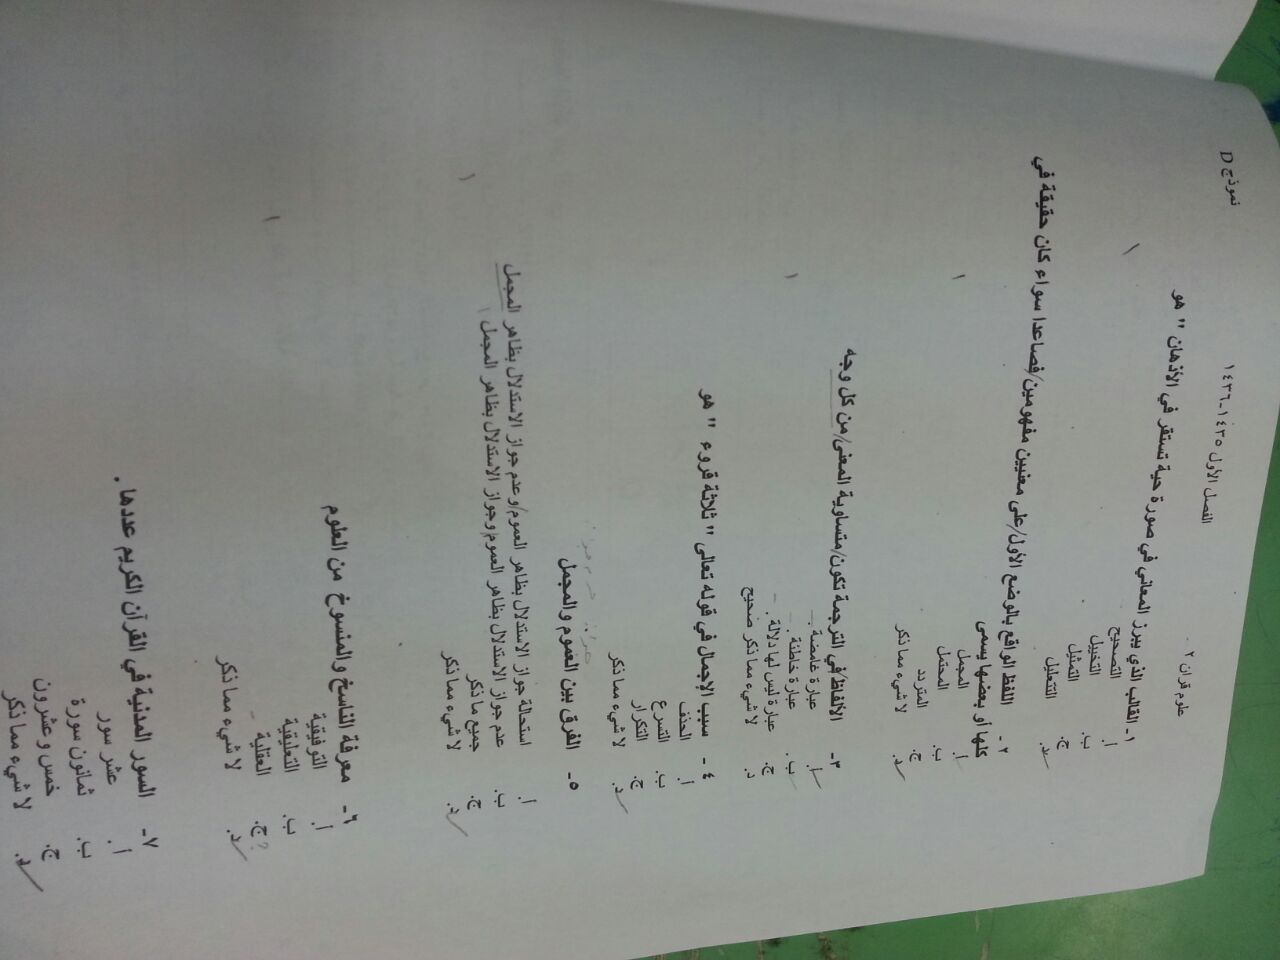 نموذج D
الفصل الأول ١٤٣٥-١٤٣٦
علوم قران ٢
١- القالب الذي يبرز المعاني في صورة حية تستقر في الأذهان " هو
أ. التصحيح
ب. التخييل
ج. التمثيل
د. التعليل
٢ - اللفظ الواقع بالوضع الأول/على معنيين مفهومين/فصاعدا سواء كان حقيقة في
كلها أو بعضها يسمى
أ. المجمل
ب. المحتمل
ج. المتردد
د. لا شيء مما ذكر
٣- الألفاظ/في الترجمة تكون/متساوية المعنى/من كل وجه
أ. عبارة غامضة
ب. عبارة خاطئة
ج. عبارة ليس لها دلالة
د. لا شيء مما ذكر صحيح
٤ - سبب الإجمال في قوله تعالى " ثلاثة قروء " هو
أ. الحذف
ب. التسرع
ج. التكرار
د. لا شيء مما ذكر
٥- الفرق بين العموم والمجمل
أ. استحالة جواز الاستدلال بظاهر العموم/وعدم جواز الاستدلال بظاهر المجمل
ب. عدم جواز الاستدلال بظاهر العموم وجواز الاستدلال بظاهر المجمل
ج. جميع ما ذكر
د. لا شيء مما ذكر
٦- معرفة الناسخ والمنسوخ من العلوم
أ. التوفيقية
ب. التعليقية
ج. العقلية
د. لا شيء مما ذكر
٧- السور المدنية في القرآن الكريم عددها.
أ. عشر سور
ب. ثمانون سورة
ج. خمس وعشرون
د. لا شيء مما ذكر